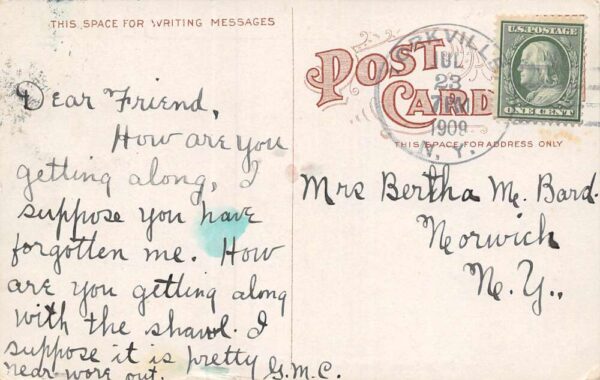 THIS SPACE FOR WRITING MESSAGES
Dear Friend,
How are you
getting along, I
suppose you have
forgotten me. How
are you getting along
with the shawl. I
suppose it is pretty
near wore out. G.M.C.
POST
CARD
THIS SPACE FOR ADDRESS ONLY
ORKVILLE
JUL
23
7 PM
1909
N. Y.
U.S. POSTAGE
ONE CENT
Mrs Bertha Mc. Bard.
Norwich
N. Y.,